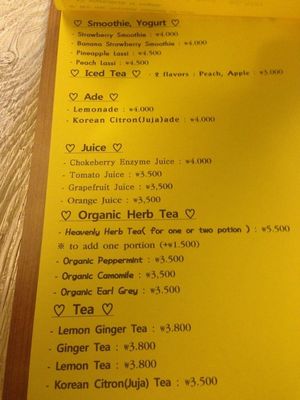 ♡ Smoothie, Yogurt ♡
- Strawberry Smoothie : ₩4.000
- Banana Strawberry Smoothie : ₩4.000
- Pineapple Lassi : ₩4.500
- Peach Lassi : ₩4.500
♡ Iced Tea ♡ - 2 flavors : Peach, Apple : ₩3.000
♡ Ade ♡
- Lemonade : ₩4.000
- Korean Citron(Juja)ade : ₩4.000
♡ Juice ♡
- Chokeberry Enzyme Juice : ₩4.000
- Tomato Juice : ₩3.500
- Grapefruit Juice : ₩3,500
- Orange Juice : ₩3,500
♡ Organic Herb Tea ♡
- Heavenly Herb Tea( for one or two potion ) : ₩5.500
※ to add one portion (+₩1.500)
- Organic Peppermint : ₩3.500
- Organic Camomile : ₩3,500
- Organic Earl Grey : ₩3.500
♡ Tea ♡
- Lemon Ginger Tea : ₩3.800
- Ginger Tea : ₩3.800
- Lemon Tea : ₩3.800
- Korean Citron(Juja) Tea : ₩3.500